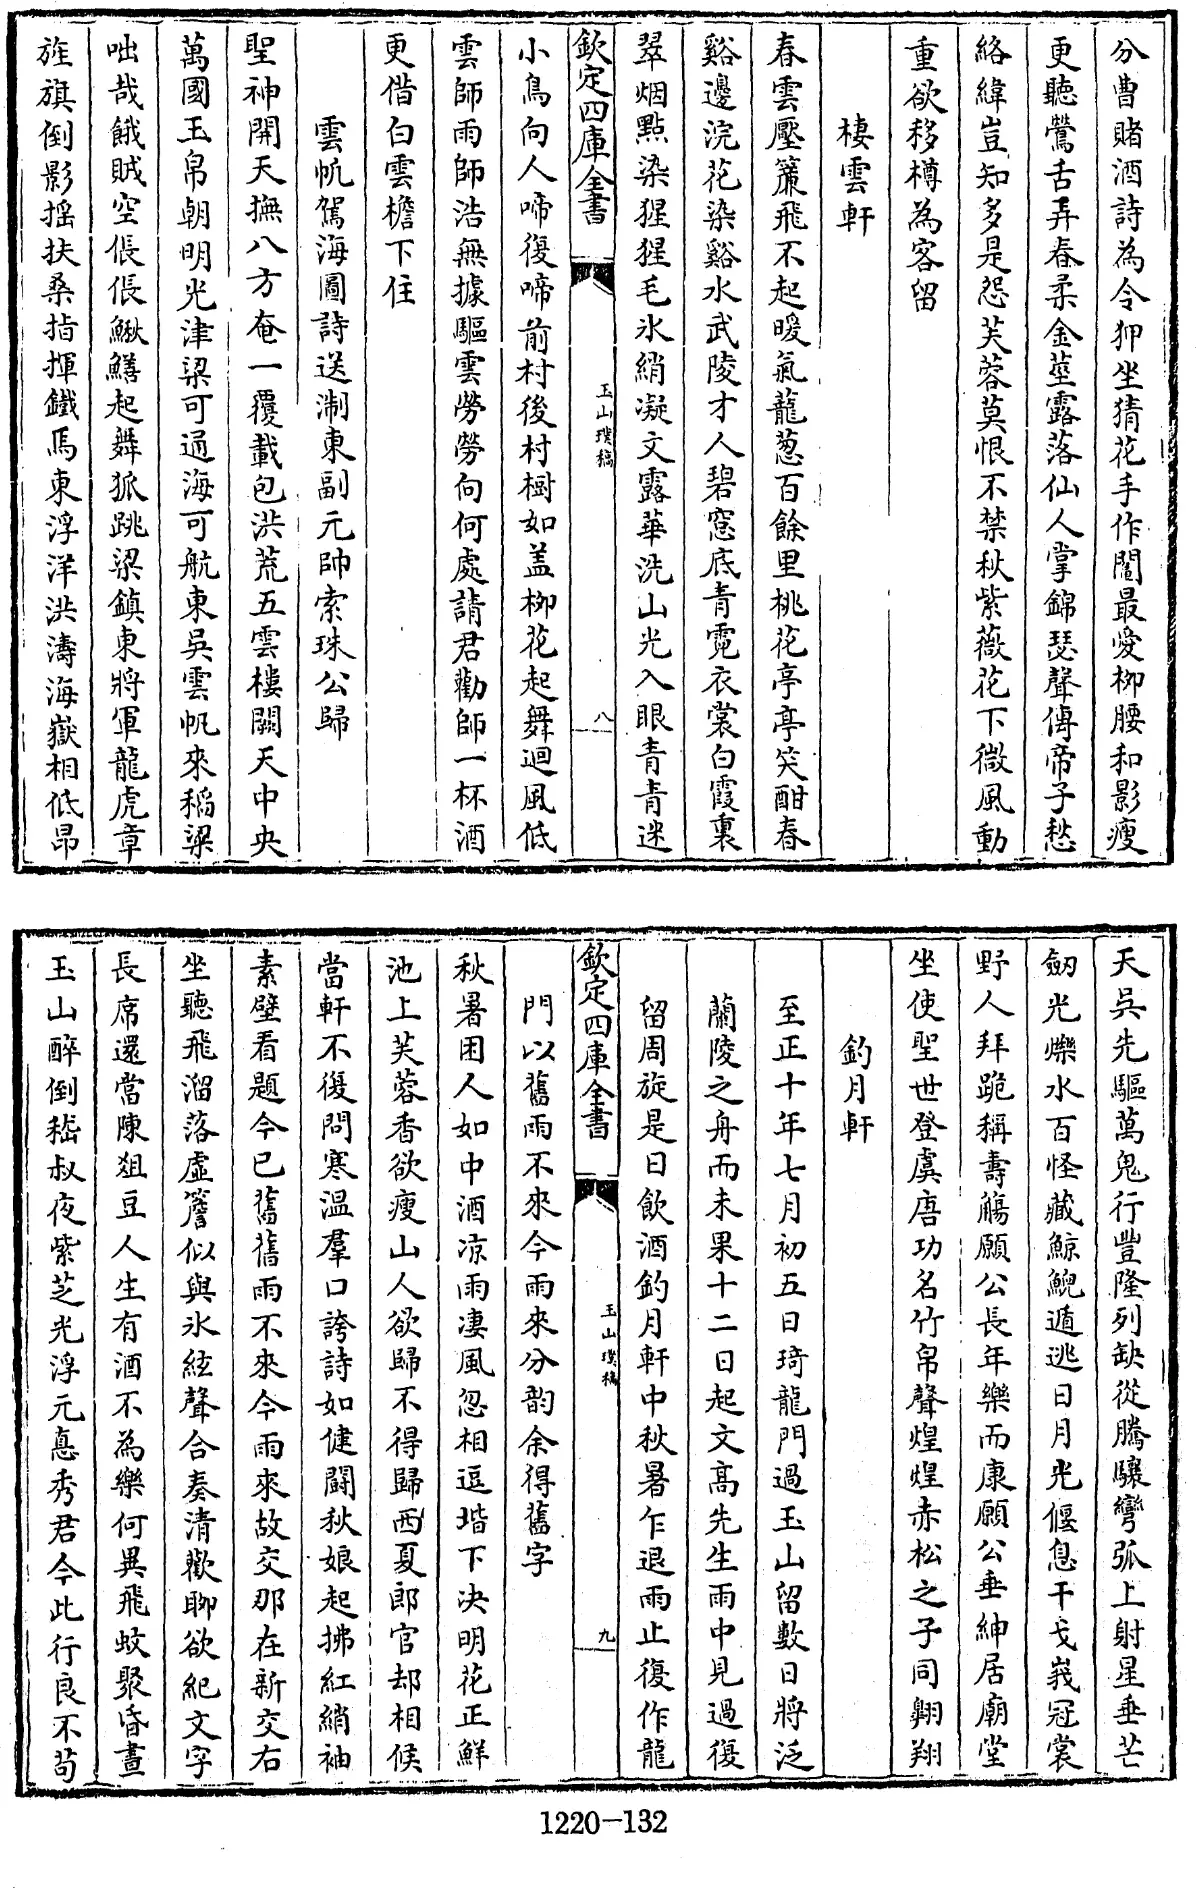 分曹賭酒詩為令狎坐猜花手作鬮最愛柳腰和影瘦
更聽鶯舌弄春柔金莖露落仙人掌錦瑟聲傳帝子愁
絡緯豈知多是怨芙蓉莫恨不禁秋紫薇花下微風動
重欲移樽為客留
棲雲軒
春雲壓簾飛不起暖氣蘢葱百餘里桃花亭亭笑酣春
谿邊浣花染谿水武陵才人碧窓底青霓衣裳白霞裏
翠烟點染猩猩毛氷綃凝文露華洗山光入眼青青迷
欽定四庫全書
玉山璞稿
八
小鳥向人啼復啼前村後村樹如盖柳花起舞迴風低
雲師雨師浩無據驅雲勞勞向何處請君勸師一杯酒
更借白雲檐下住
雲帆駕海圖詩送淛東副元帥索珠公歸
聖神開天撫八方奄一覆載包洪荒五雲樓闕天中央
萬國玉帛朝明光津梁可通海可航東吳雲帆來稻粱
咄哉餓賊空倀倀鰍鱔起舞狐跳梁鎮東將軍龍虎章
旌旗倒影揺扶桑指揮鐵馬東浮洋洪濤海嶽相低昂
天吳先驅萬鬼行豐隆列缺從騰驤彎弧上射星垂芒
劒光爍水百怪藏鯨鯢遁逃日月光偃息干戈峩冠裳
野人拜跪稱壽觴願公長年樂而康願公垂紳居廟堂
坐使聖世登虞唐功名竹帛聲煌煌赤松之子同翺翔
釣月軒
至正十年七月初五日琦龍門過玉山留數日將泛
蘭陵之舟而未果十二日起文髙先生雨中見過復
留周旋是日飲酒釣月軒中秋暑乍退雨止復作龍
欽定四庫全書
玉山璞稿
九
門以舊雨不來今雨來分韵余得舊字
秋暑困人如中酒凉雨凄風忽相逗堦下决明花正鮮
池上芙蓉香欲瘦山人欲歸不得歸西夏郎官却相候
當軒不復問寒溫羣口誇詩如健鬭秋娘起拂紅綃袖
素壁看題今已舊舊雨不來今雨來故交那在新交右
坐聽飛溜落虛簷似與氷絃聲合奏清歡聊欲紀文字
長席還當陳俎豆人生有酒不為樂何異飛蚊聚昏晝
玉山醉倒嵇叔夜紫芝光浮元悳秀君今此行良不苟
1220-132